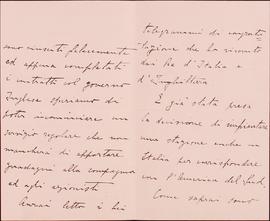 sono riusciti felicemente
ed appena completati
i contratti col governo
Inglese speriamo di
poter incominciare un
servizio regolare che non
mancherà di apportare
guadagni alla compagnia
ed agli azionisti
Avrai letto i bei
telegrammi di congratu-
lazione che ho ricevuto
dai Re d'Italia e
d'Inghilterra
È già stata presa
la decisione di impiantare
una stazione anche in
Italia per corrispondere
con l'America del Sud.
Come saprai sono